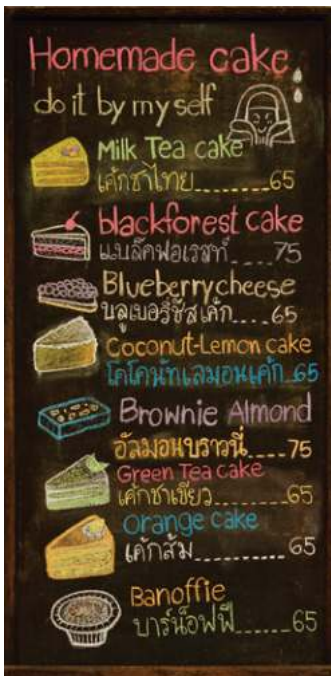 Homemade cake
do it by myself
Milk Tea cake
เค้กชาไทย........65
blackforest cake
แบล๊คฟอเรสท์.....75
Blueberrycheese
บลูเบอรี่ชีสเค้ก....65
Coconut-Lemon cake
โคโคนัทเลมอนเค้ก 65
Brownie Almond
อัลมอนบราวนี่.....75
Green Tea cake
เค้กชาเขียว........65
Orange cake
เค้กส้ม..........65
Banoffie
บาร์น็อฟฟี่......65